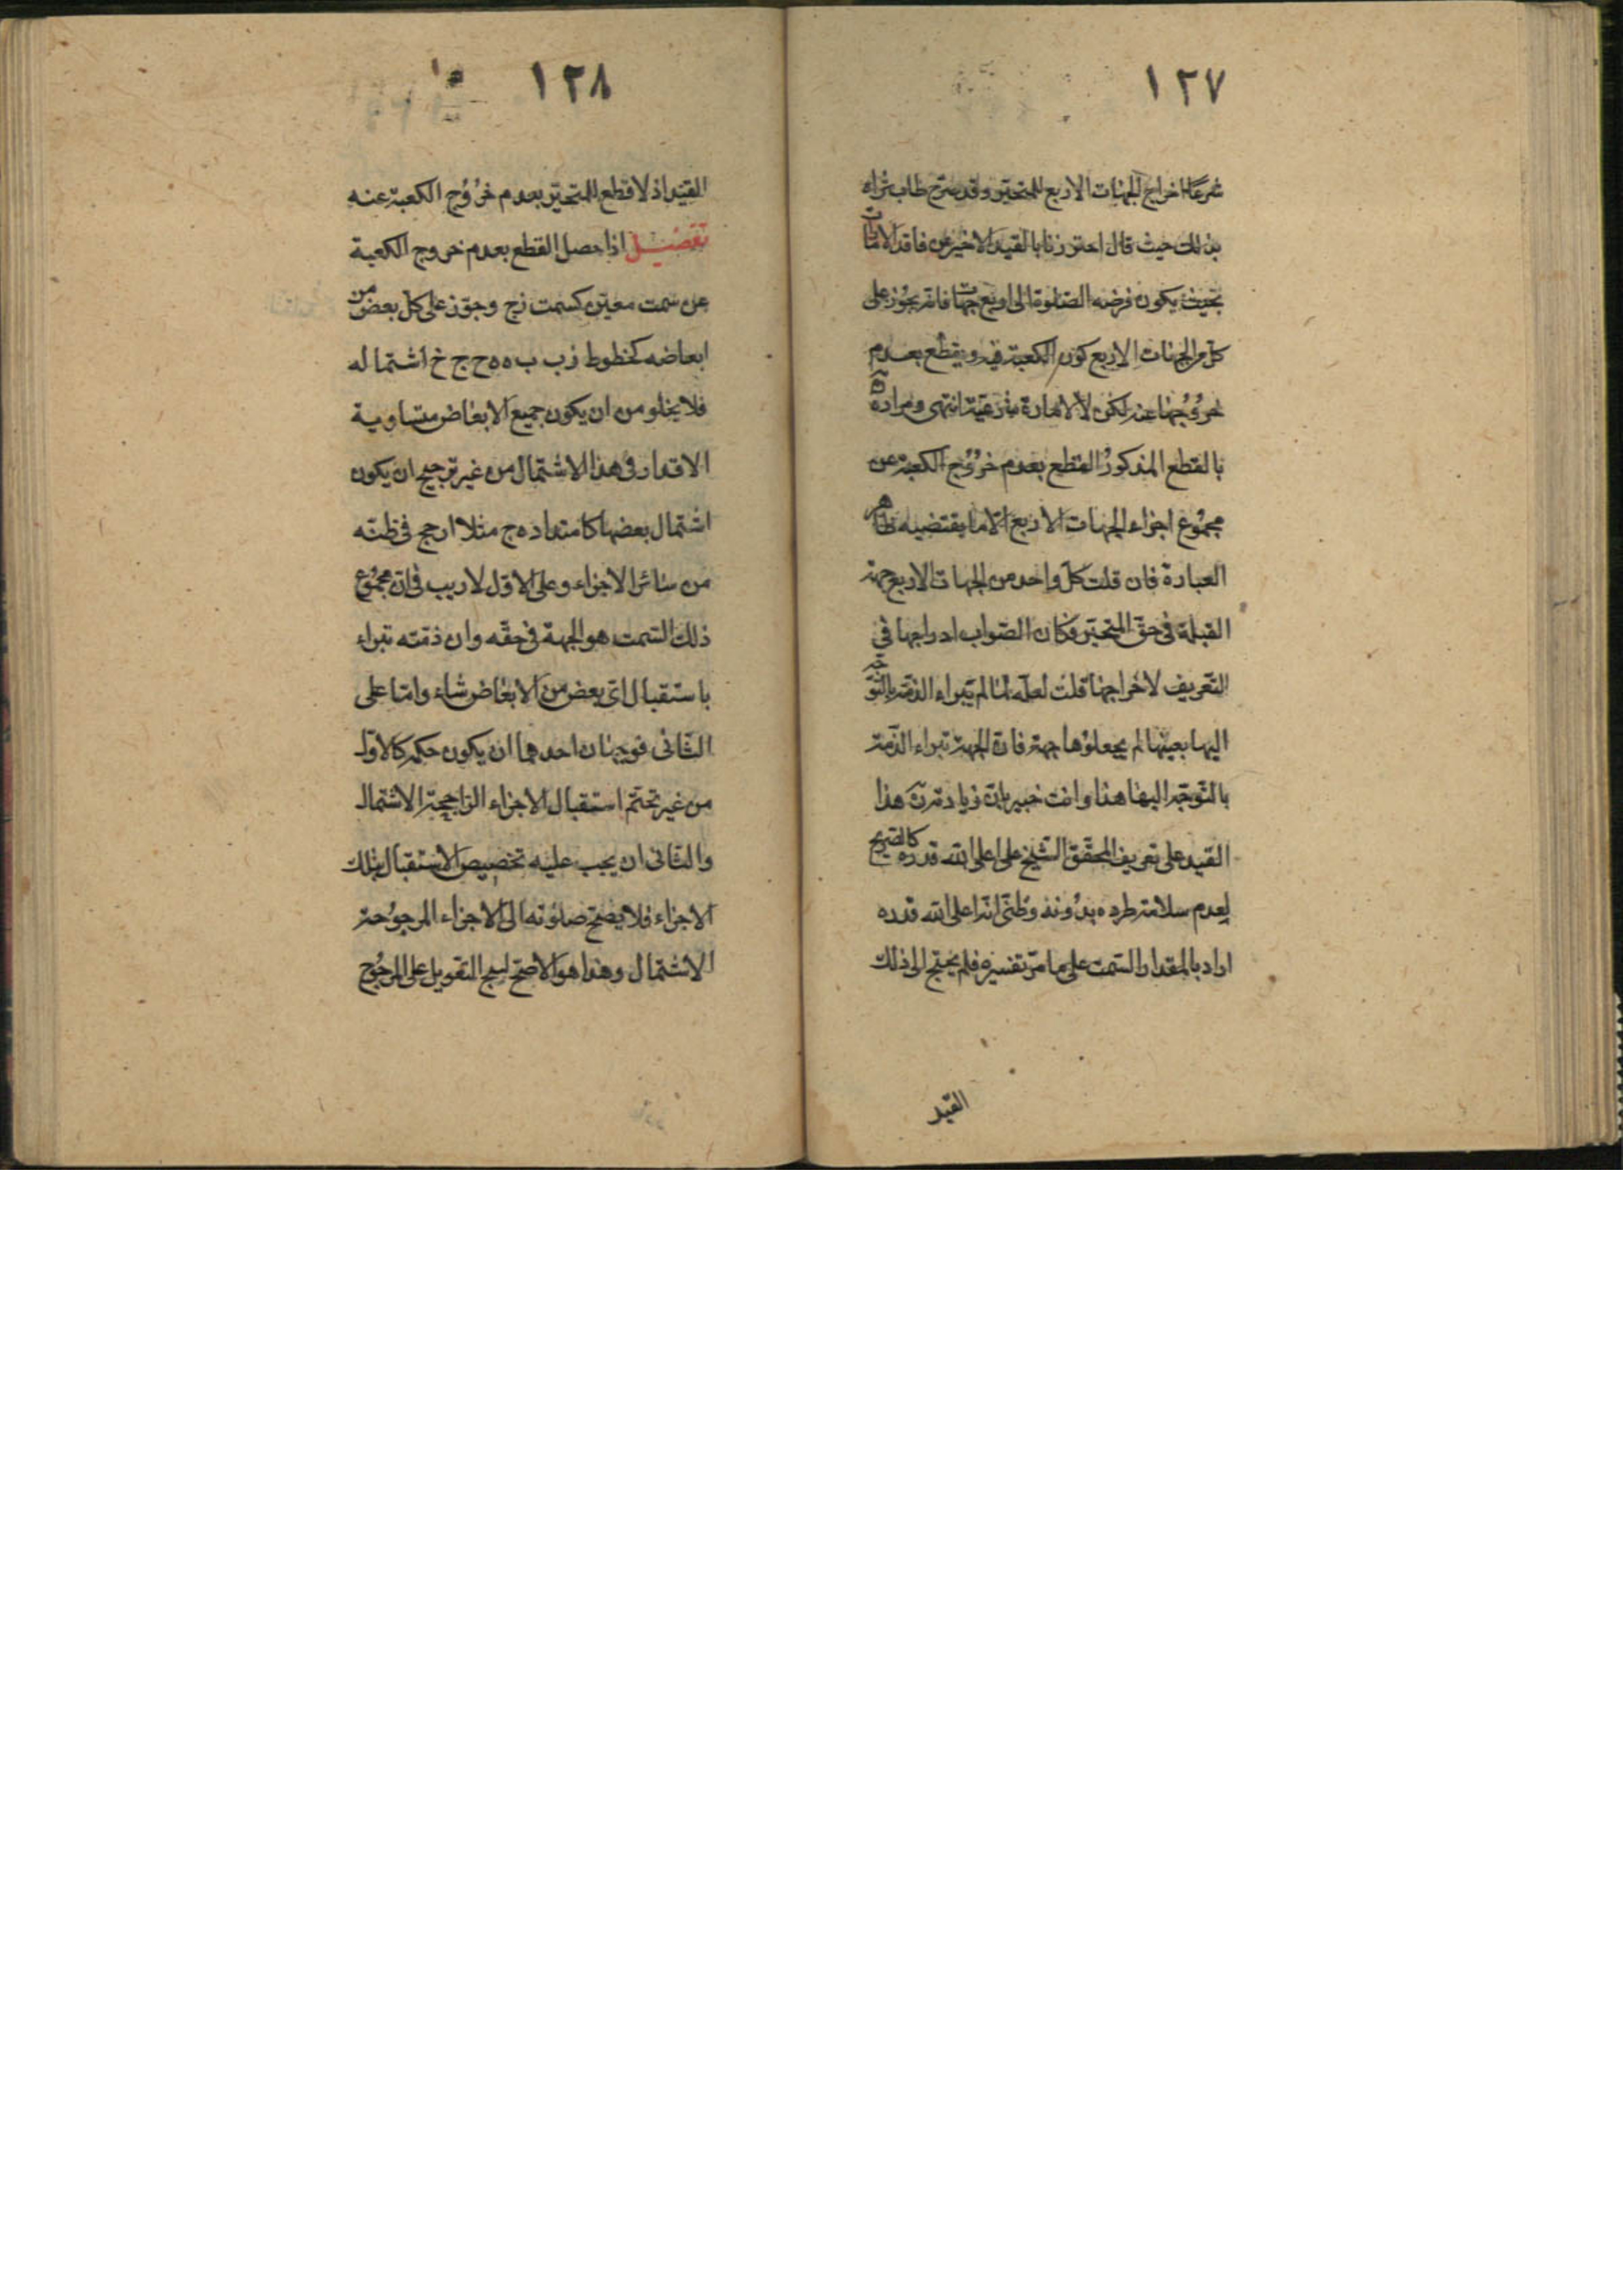 ١٢٧
شرعًا اخراج الجهات الاربع للمتحير وقد صرح طاب ثراه
بذلك حيث قال احترزنا بالقيد الاخير عن فاقد الامارات
بحيث يكون فرضه الصلوة الى اربع جهات فانه يجوز على
كل من الجهات الاربع كون الكعبة فيه ويقطع بعدم
خروجها عنه لكن لا لامارة شرعية انتهى ومراده
بالقطع المذكور القطع بعدم خروج الكعبة عن
مجموع اجزاء الجهات الاربع لا ما يقتضيه ظاهر
العبارة فان قلت كل واحد من الجهات الاربع جهة
القبلة فى حق المتحير فكان الصواب ادراجها في
التعريف لا اخراجها قلت لعله لما لم تبراء الذمة بالتوجه
اليها بعينها لم يجعلوها جهة فان الجهة تبراء الذمة
بالتوجه اليها هذا وانت خبير بان زيادته هذا
القيد على تعريف المحقق الشيخ على اعلى الله قدره كالصريح
لعدم سلامة طرده بدونه وظنى انه اعلى الله قدره
اراد بالمقدار السمت على ما مر تفسيره فلم يحتج الى ذلك
القيد
١٢٨
القيد اذ لا قطع للمتحير بعدم خروج الكعبة عنه
تفصيل اذا حصل القطع بعدم خروج الكعبة
عن سمت معين كسمت زج وجوز على كل بعض من
ابعاضه كخطوط زب ب ه ه ح ج خ اشتماله
فلا يخلو من ان يكون جميع الابعاض متساوية
الاقدار فى هذا الاشتمال من غير ترجيح ان يكون
اشتمال بعضها كامتداد ه ج مثلا ارجح فى ظنه
من سائر الاجزاء وعلى الاول لا ريب فى ان مجموع
ذلك السمت هو الجهة فى حقه وان ذمته تبراء
باستقبال اى بعض من الابعاض شاء واما على
الثانى فوجهان احدهما ان يكون حكمه كالاول
من غير تحتم استقبال الاجزاء الراجحة الاشتمال
والثانى ان يجب عليه تخصيص الاستقبال بتلك
الاجزاء فلا يصح صلوته الى الاجزاء المرجوحة
الاشتمال وهذا هو الاصح لسمج التعويل على المرجوح